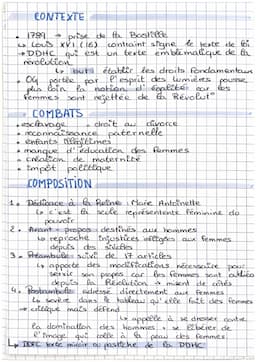 CONTEXTE
• 1789 → prise de la Bastille
↳ Louis XVI (16) contraint signe le texte de loi
→ DDHC qui est un texte emblématique de la
révolution
↳ but : établir les droits fondamentaux
• OG portée par l'esprit des lumières pousse
plus loin la notion d'égalité car les
femmes sont rejettée de la Révolut°
COMBATS
• esclavage • droit au divorce
• reconnaissance paternelle
• enfants illégitimes
• manque d'éducation des femmes
• création de maternité
• impôt politique
COMPOSITION
1. Dédicace à la Reine : Marie Antoinette
↳ c'est la seule représentante féminine du
pouvoir
2. Avant-propos : destinés aux hommes
↳ reproche injustices infligées aux femmes
depuis des siècles
3. Préambule suivi de 17 articles
↳ apporte des modifications nécessaire pour
servir son propos car les femmes sont
depuis la Révolution → misent de côtés
4. Postrambule adressé directement aux femmes
↳ sorte dans le tableau qu'elle fait des femmes
→ critique mais défend
↳ appelle à se dresser contre
la domination des hommes + se libérer de
l'image qui colle à la peau des femmes
↳ DDFC texte miroir ou pastiche de la DDHC